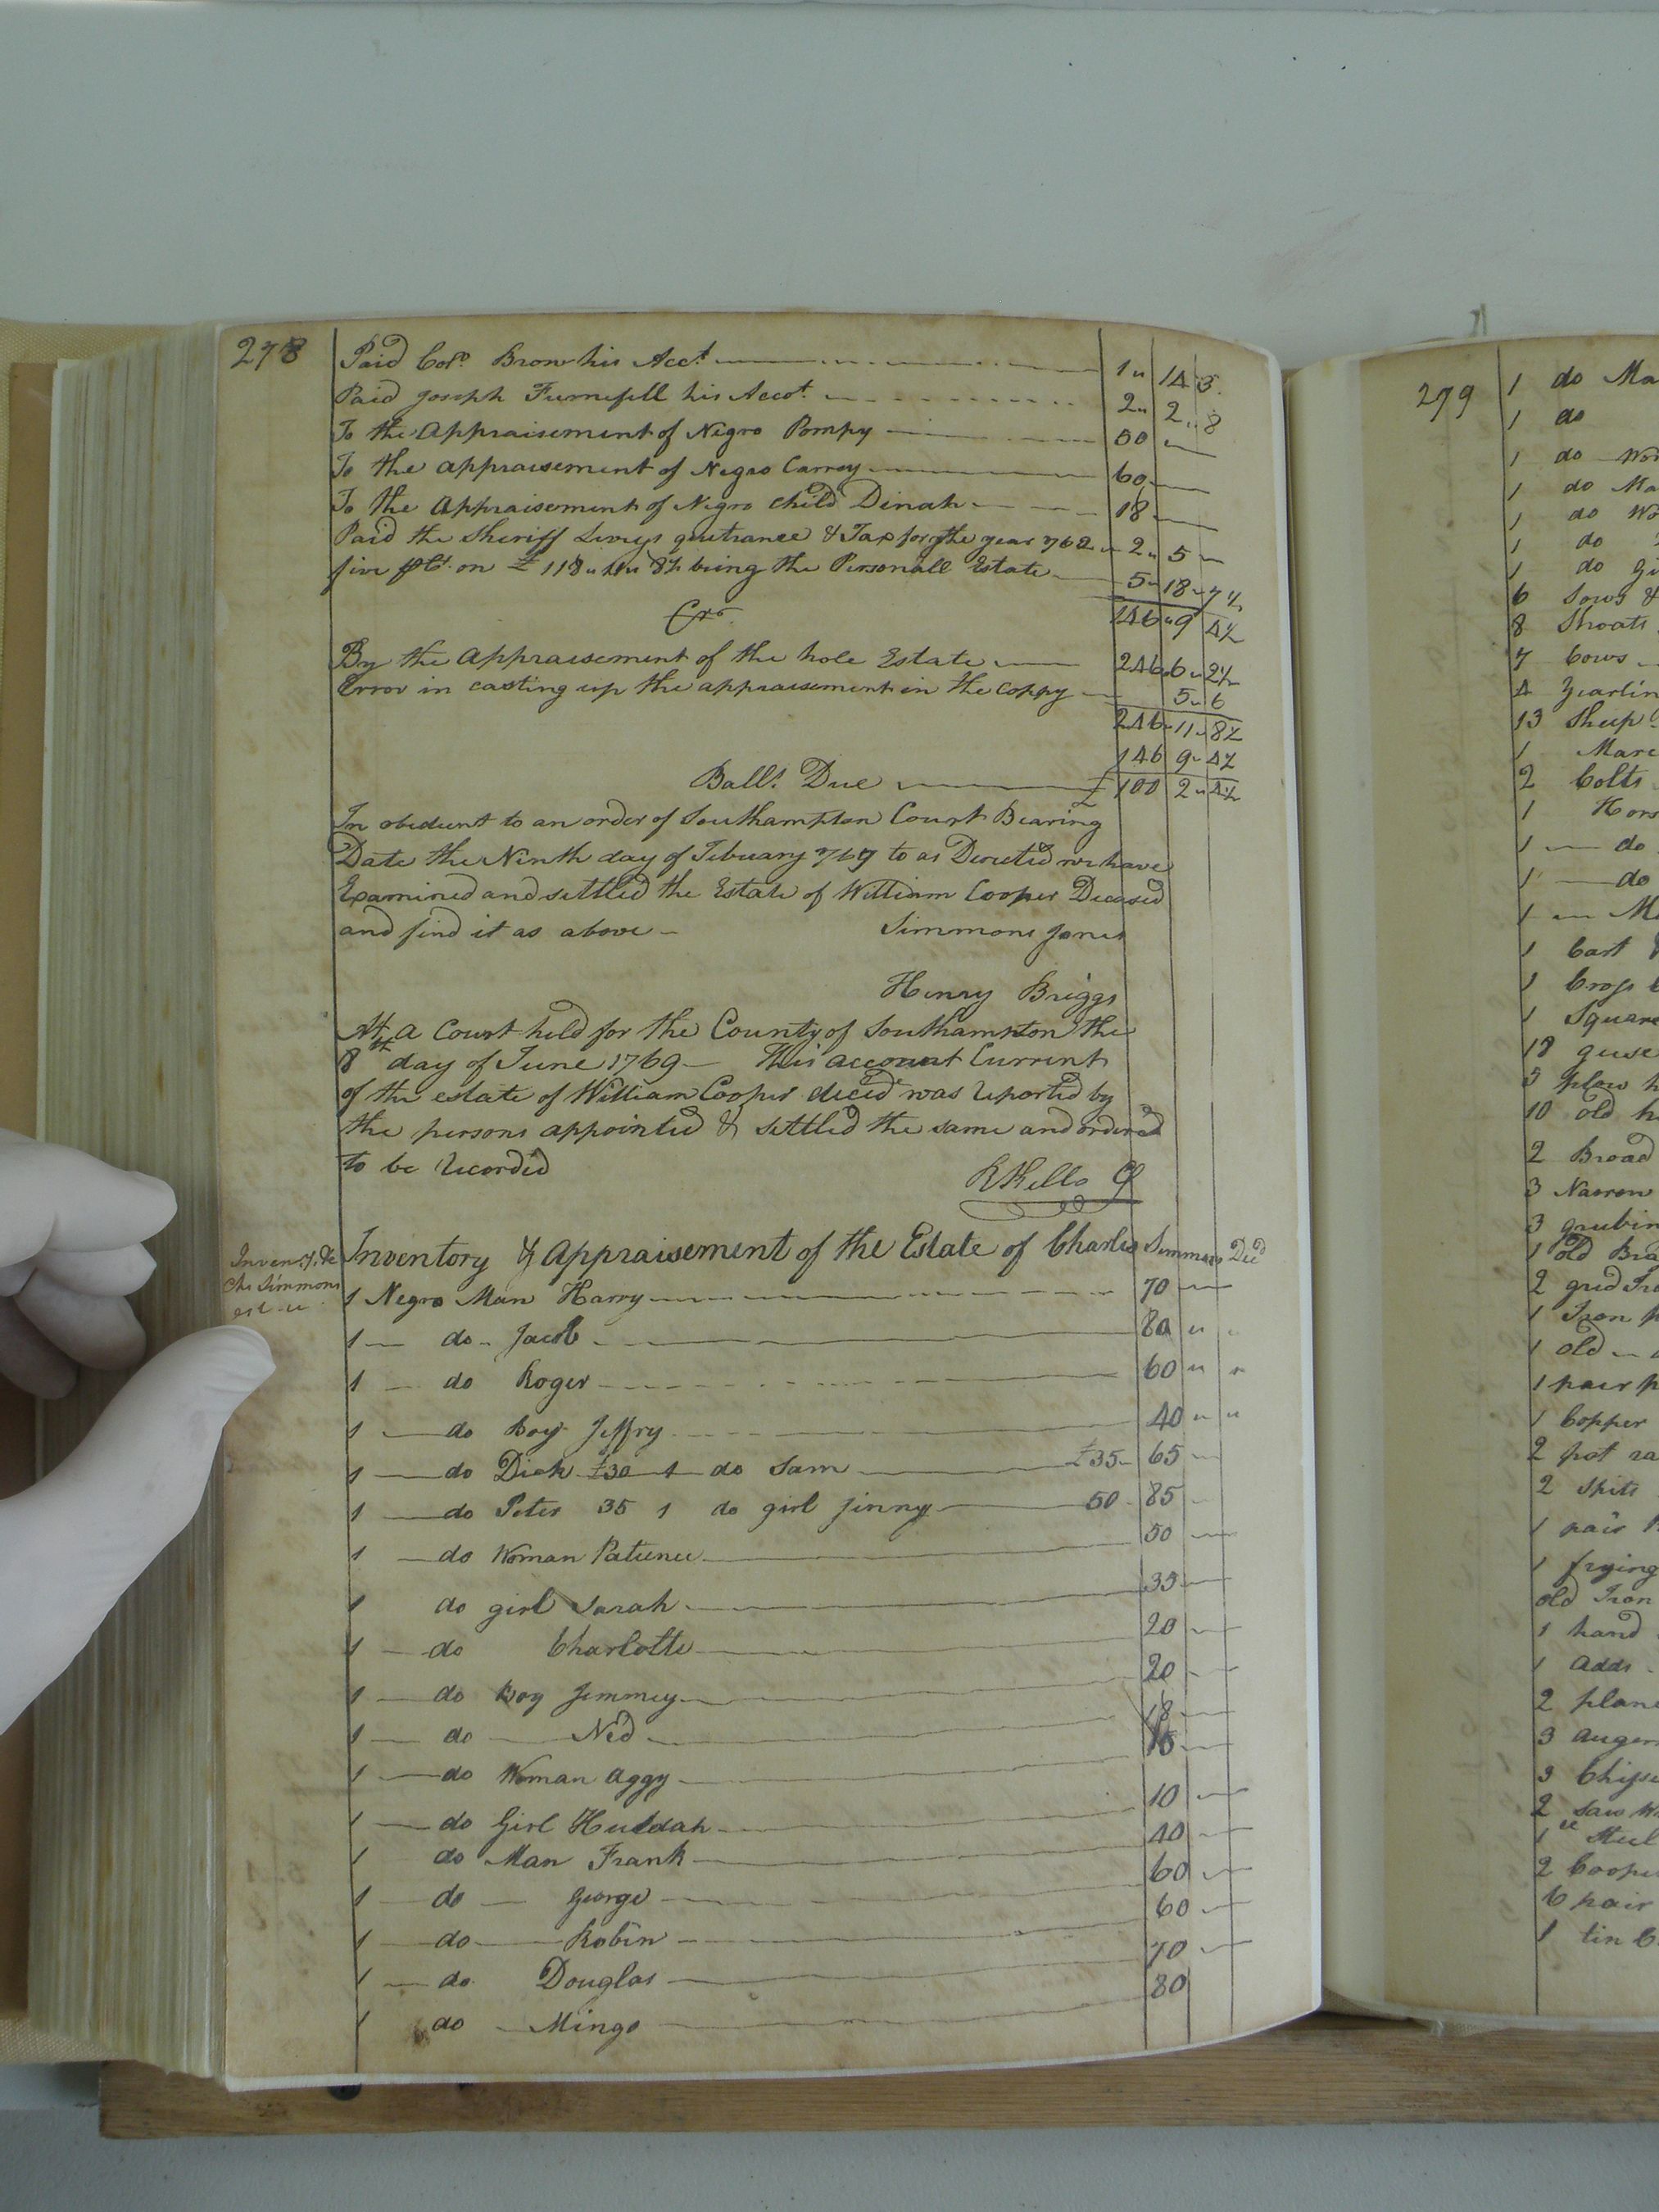 278
Paid Colo. Brown his Acct. 1 " 14 3.
Paid Joseph Turnefell his Accot. 2 " 2 " 8
To the Appraisement of Negro Pompy 50
To the appraisement of Negro Carrey 60
To the Appraisement of Negro child Dinah 18
Paid the Sheriff Levys quitrance & Tax for the year 762 2 " 5
five pCt. on £ 118 being the Personall Estate 5 " 18 " 7½
Cro. 146 " 9 4½
By the appraisement of the hole Estate 246 6 " 2½
Error in casting up the appraisement in the coppy 5 " 6
246 " 11 " 8½
146 9 " 4½
Balls. Due £ 100 2 " 4½
In obedient to an order of Southampton Court Bearing
Date the Ninth day of Febuary 769 to as Directed we have
Examined and settled the Estate of William Cooper Deceased
and find it as above Simmons Jones
Henry Briggs
At a Court held for the County of Southampton the
8th day of June 1769 This account Current
of the estate of William Cooper deced was reported by
the persons appointed & settled the same and ordered
to be recorded
RKello Cl
Inventy. &c
Chs Simmons
est
Inventory & Appraisement of the Estate of Charles Simmons Decd
1 Negro Man Harry 70
1 do Jacob 80
1 do Roger 60
1 do boy Jeffry 40
1 do Dick £30 1 do Sam £35 65
1 do Peter 35 1 do girl Jinny 50 85
1 do Woman Patience 50
1 do girl Sarah 35
1 do Charlotte 20
1 do Boy Jemmey 20
1 do Ned 18
1 do Woman Aggy 15
1 do Girl Huldah 10
1 do Man Frank 40
1 do George 60
1 do Robin 60
1 do Douglas 70
1 do Mingo 80
279
1 do Ma
1 do
1 do Wo
1 do Ma
1 do Wo
1 do
1 do Gi
6 Sows &
8 Shoats
7 Cows
4 Yearlin
13 Sheep
1 Mare
2 Colts
1 Hors
1 do
1 do
1 M
1 Cart
1 Cross
1 Square
18 geese
5 plow h
10 old h
2 Broad
3 Narrow
3 grubin
1 old Bra
2 grid Iro
1 Iron p
1 old
1 pair p
1 Copper
2 pot ra
2 Spits
1 pair
1 frying
old Iron
1 hand
1 Adds
2 plane
3 Auger
3 Chise
2 Saw
1 Steel
2 Coope
6 pair
1 tin C